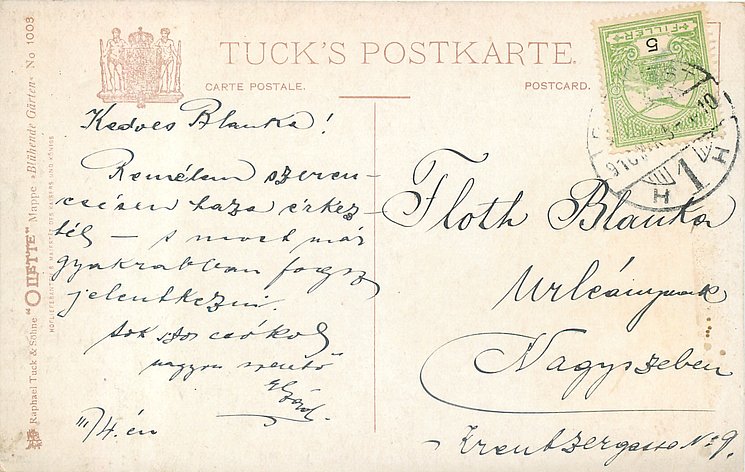 TUCK'S POSTKARTE.
CARTE POSTALE.
POSTCARD.
Raphael Tuck & Söhne "OILETTE" Mappe »Blühende Gärten« No 1003
HOFLIEFERANTEN S. MAJESTÄT DES KAISERS UND KÖNIGS
5
FILLÉR
H 1 H
Kedves Blanka!
Remélem szeren-
csésen haza érkez-
tél – s most már
gyakrabban fogsz
jelentkezni.
sok szor csókol
nagyon szerető
III/4.én
Floth Blanka
Urleánynak
Nagyszeben
Kreutzergasse No 9.